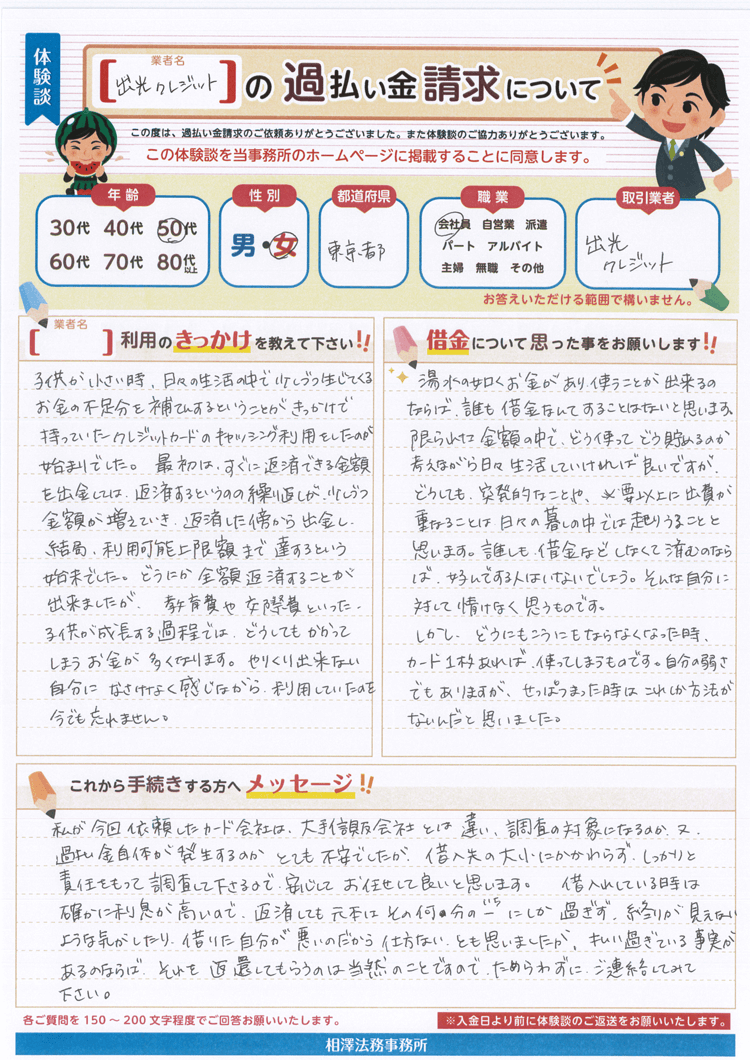 体験談
業者名
[出光クレジット]の過払い金請求について
この度は、過払い金請求のご依頼ありがとうございました。また体験談のご協力ありがとうございます。
この体験談を当事務所のホームページに掲載することに同意します。
年齢
30代 40代 50代
60代 70代 80代以上
性別
男・女
都道府県
東京都
職業
会社員 自営業 派遣
パート アルバイト
主婦 無職 その他
取引業者
出光
クレジット
お答えいただける範囲で構いません。
業者名
[ ]利用のきっかけを教えて下さい!!
子供が小さい時、日々の生活の中で少しづつ生じてくる
お金の不足分を補てんするということがきっかけで
持っていたクレジットカードのキャッシング利用をしたのが
始まりでした。最初は、すぐに返済できる金額
を出金しては、返済するというのの繰り返しが、少しづつ
金額が増えていき、返済した傍から出金し、
結局、利用可能上限額まで達するという
始末でした。どうにか全額返済することが
出来ましたが、教育費や交際費といった、
子供が成長する過程では、どうしてもかかって
しまうお金が多くなります。やりくり出来ない
自分になさけなく感じながら、利用していたのを
今でも忘れません。
借金について思った事をお願いします!!
湯水の如くお金があり、使うことが出来るの
ならば、誰も借金なんてすることはないと思います。
限られた金額の中で、どう使ってどう貯めるのか
考えながら日々生活していければ良いですが、
どうしても、突発的なことや、必要以上に出費が
重なることは日々の暮しの中では起りうることと
思います。誰しも、借金などしなくて済むのなら
ば、好んでする人はいないでしょう。そんな自分に
対して情けなく思うものです。
しかし、どうにもこうにもならなくなった時、
カード1枚あれば、使ってしまうものです。自分の弱さ
でもありますが、せっぱつまった時はこれしか方法が
ないんだと思いました。
これから手続きする方へメッセージ!!
私が今回依頼したカード会社は、大手信販会社とは違い、調査の対象になるのか、又、
過払い金自体が発生するのかとても不安でしたが、借入先の大小にかかわらず、しっかりと
責任をもって調査して下さるので、安心してお任せして良いと思います。 借入れしている時は
確かに利息が高いので、返済しても元本はその何分の一にしか過ぎず、終りが見えない
ような気がしたり、借りた自分が悪いのだから仕方ないとも思いましたが、払い過ぎている事実が
あるのならば、それを返還してもらうのは当然のことですので、ためらわずに、ご連絡してみて
下さい。
各ご質問を150〜200文字程度でご回答お願いいたします。
※入金日より前に体験談のご返送をお願いいたします。
相澤法務事務所